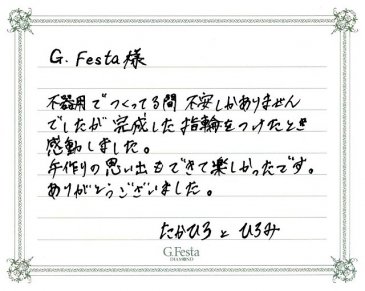 G. Festa 様
不器用でつくってる間 不安しかありません
でしたが 完成した指輪をつけたとき
感動しました。
手作りの思い出もできて楽しかったです。
ありがとうございました。
たかひろ と ひろみ
G.Festa
DIAMOND